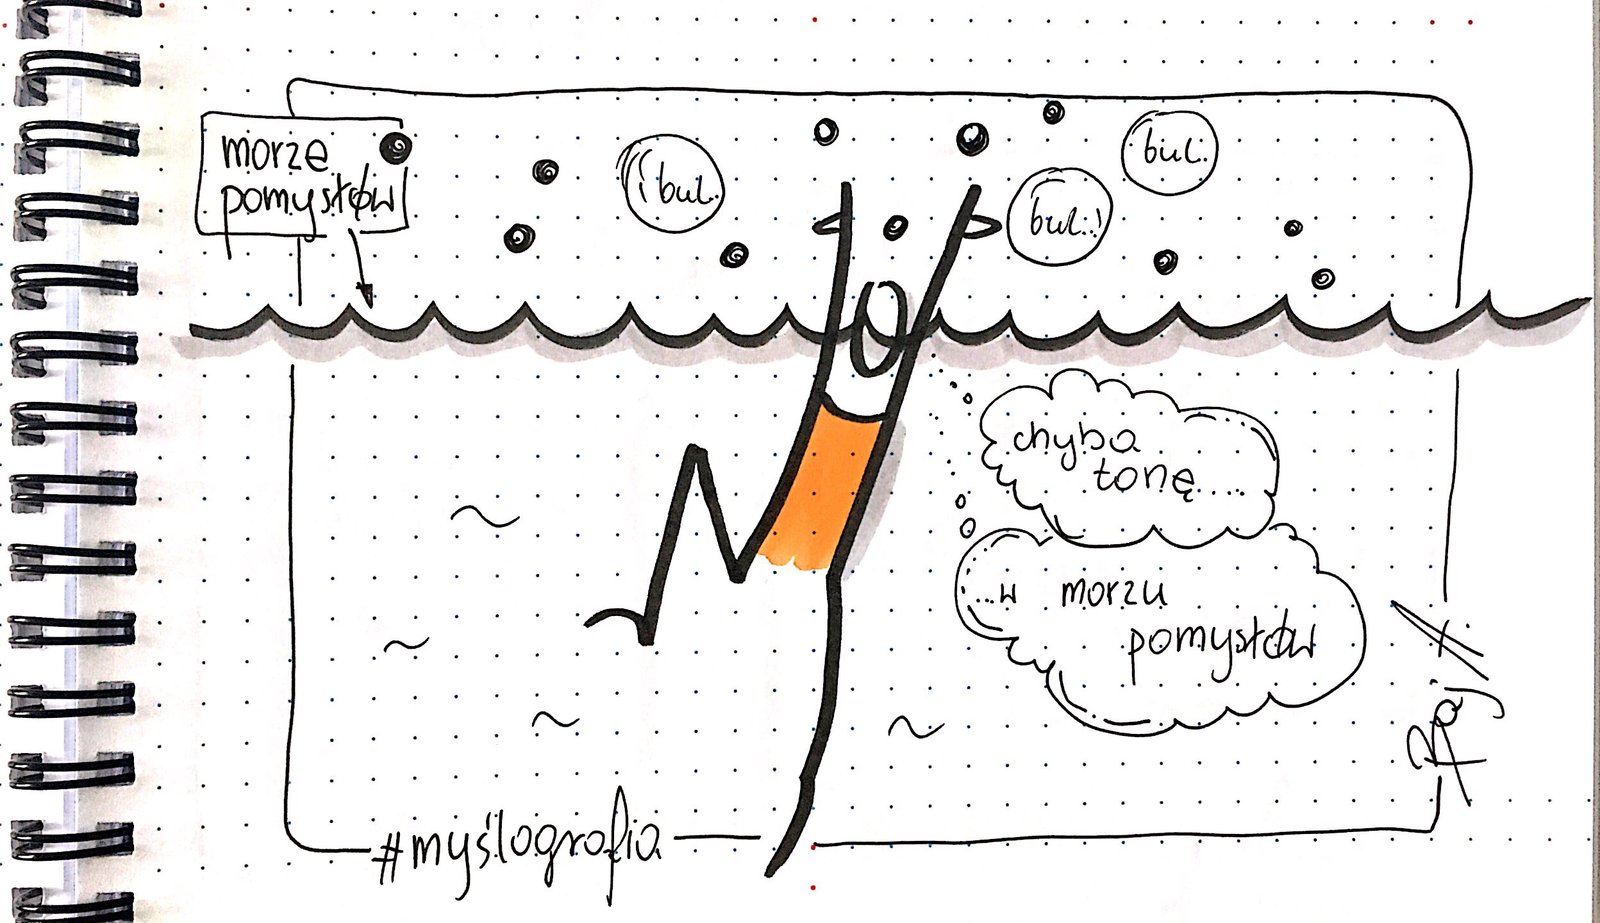 morze
pomysłów
bul..
bul..!
bul..
chyba
tonę....
...w morzu
pomysłów
#myślografia